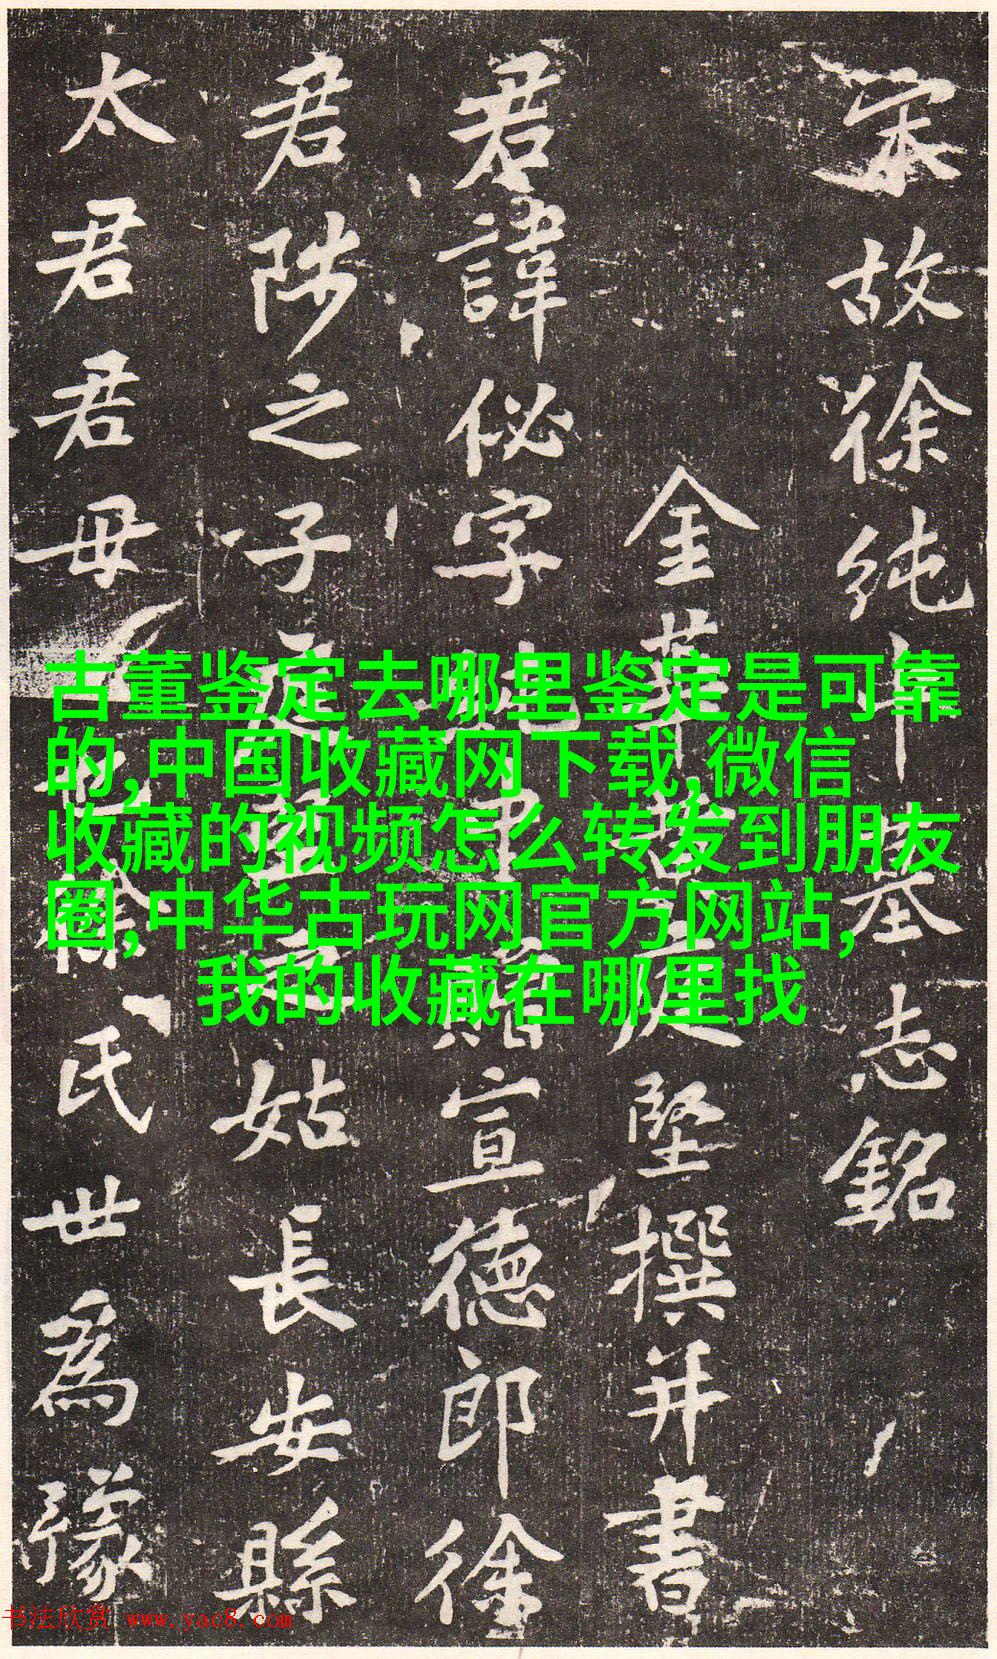 宋故徐純中墓志銘
金華庭堅撰并書
君諱佖字贈宣德郎徐
君陟之子姑長安縣
太君君母氏世為豫
古董鉴定去哪里鉴定是可靠
的,中国收藏网下载,微信
收藏的视频怎么转发到朋友
圈,中华古玩网官方网站,
我的收藏在哪里找
书法欣赏 www.yac8.com